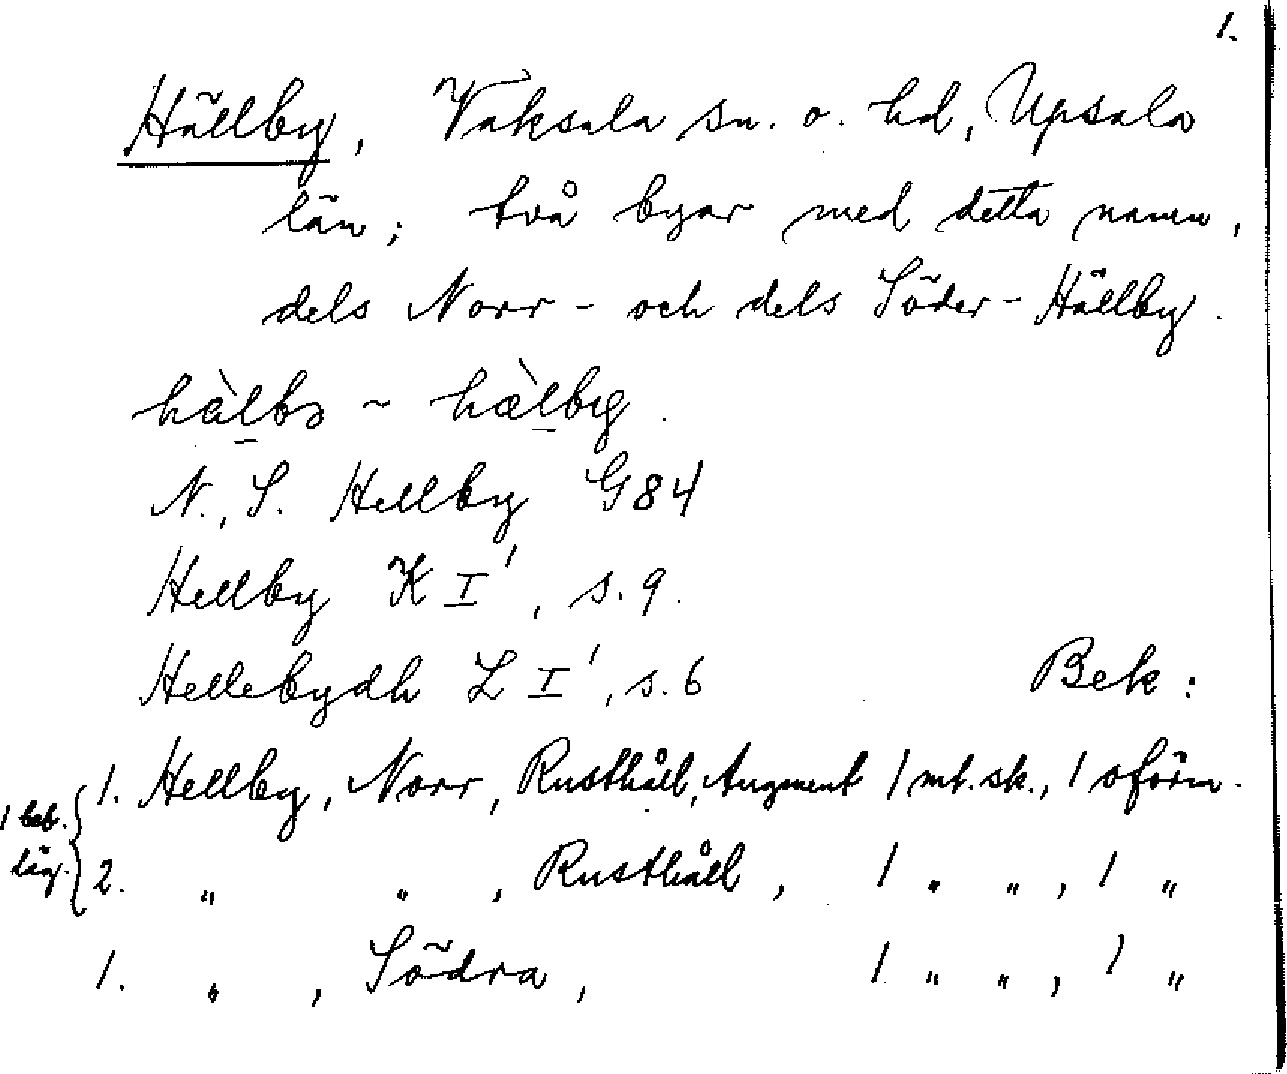 1.
Hällby, Vaksala sn. o. hd, Upsala
län; två byar med detta namn,
dels Norr- och dels Söder-Hällby.
hàlbə ~ hæ̀lby.
N., S. Hellby G84
Hellby K I¹, s. 9.
Hellebydh L I¹, s. 6 Bek:
1. Hellby, Norr, Rusthåll, Augment 1 mt. sk., 1 oförm.
1 beb.
läg. 2. „ „ , Rusthåll, 1 „ „ , 1 „
1. „ , Södra, 1 „ „ , 1 „